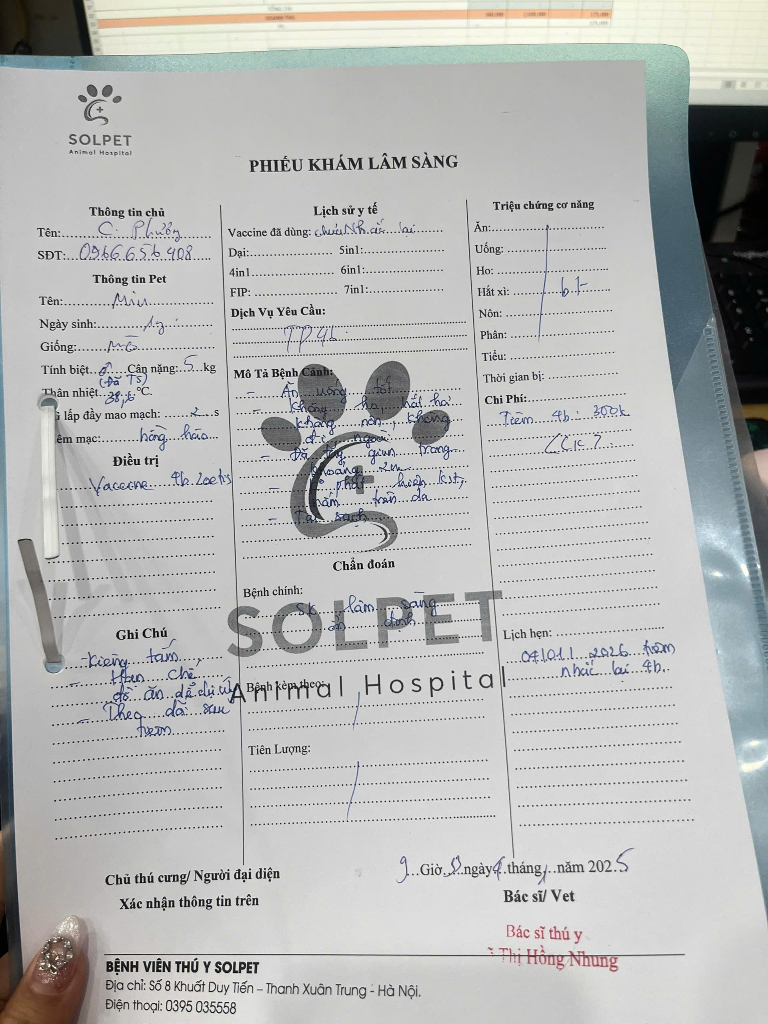 SOLPET
Animal Hospital
PHIẾU KHÁM LÂM SÀNG
Thông tin chủ
Tên: C. Phương
SĐT: 0966.656.908
Thông tin Pet
Tên: Miu
Ngày sinh: 1y
Giống: Mỡ
Tính biệt ♂ Cân nặng: 5 kg
(Đã TS)
Thân nhiệt: 38,6 °C.
lấp đầy mao mạch: 2 s
êm mạc: hồng hào
Điều trị
Vaccine 4b Zoetis
Ghi Chú
- Kiêng tắm,
- Hạn chế
đồ ăn dễ dị ứng
- Theo dõi sau
tiêm
Lịch sử y tế
Vaccine đã dùng: chưa Nhắc lại
Dại: 5in1:
4in1 6in1:
FIP: 7in1:
Dịch Vụ Yêu Cầu:
TP4b
Mô Tả Bệnh Cảnh:
- Ăn uống tốt
- Không ho, hắt hơi
không nôn, không
đi ngoài
- Đã tẩy giun trong
khoảng 2m
- phát hiện kst,
nấm trên da
- Tai sạch
Chẩn đoán
Bệnh chính:
SK lâm sàng
ổn định
SOLPET
Animal Hospital
Bệnh kèm theo:
Tiên Lượng:
Triệu chứng cơ năng
Ăn:
Uống:
Ho:
Hắt xì: bt
Nôn:
Phân:
Tiểu:
Thời gian bị:
Chi Phí:
Tiêm 4b: 300k
Lịch hẹn:
04/01/2026 tiêm
nhắc lại 4b.
Chủ thú cưng/ Người đại diện
Xác nhận thông tin trên
9 Giờ, ngày tháng năm 2025
Bác sĩ/ Vet
Bác sĩ thú y
Thị Hồng Nhung
BỆNH VIÊN THÚ Y SOLPET
Địa chỉ: Số 8 Khuất Duy Tiến – Thanh Xuân Trung - Hà Nội.
Điện thoại: 0395 035558